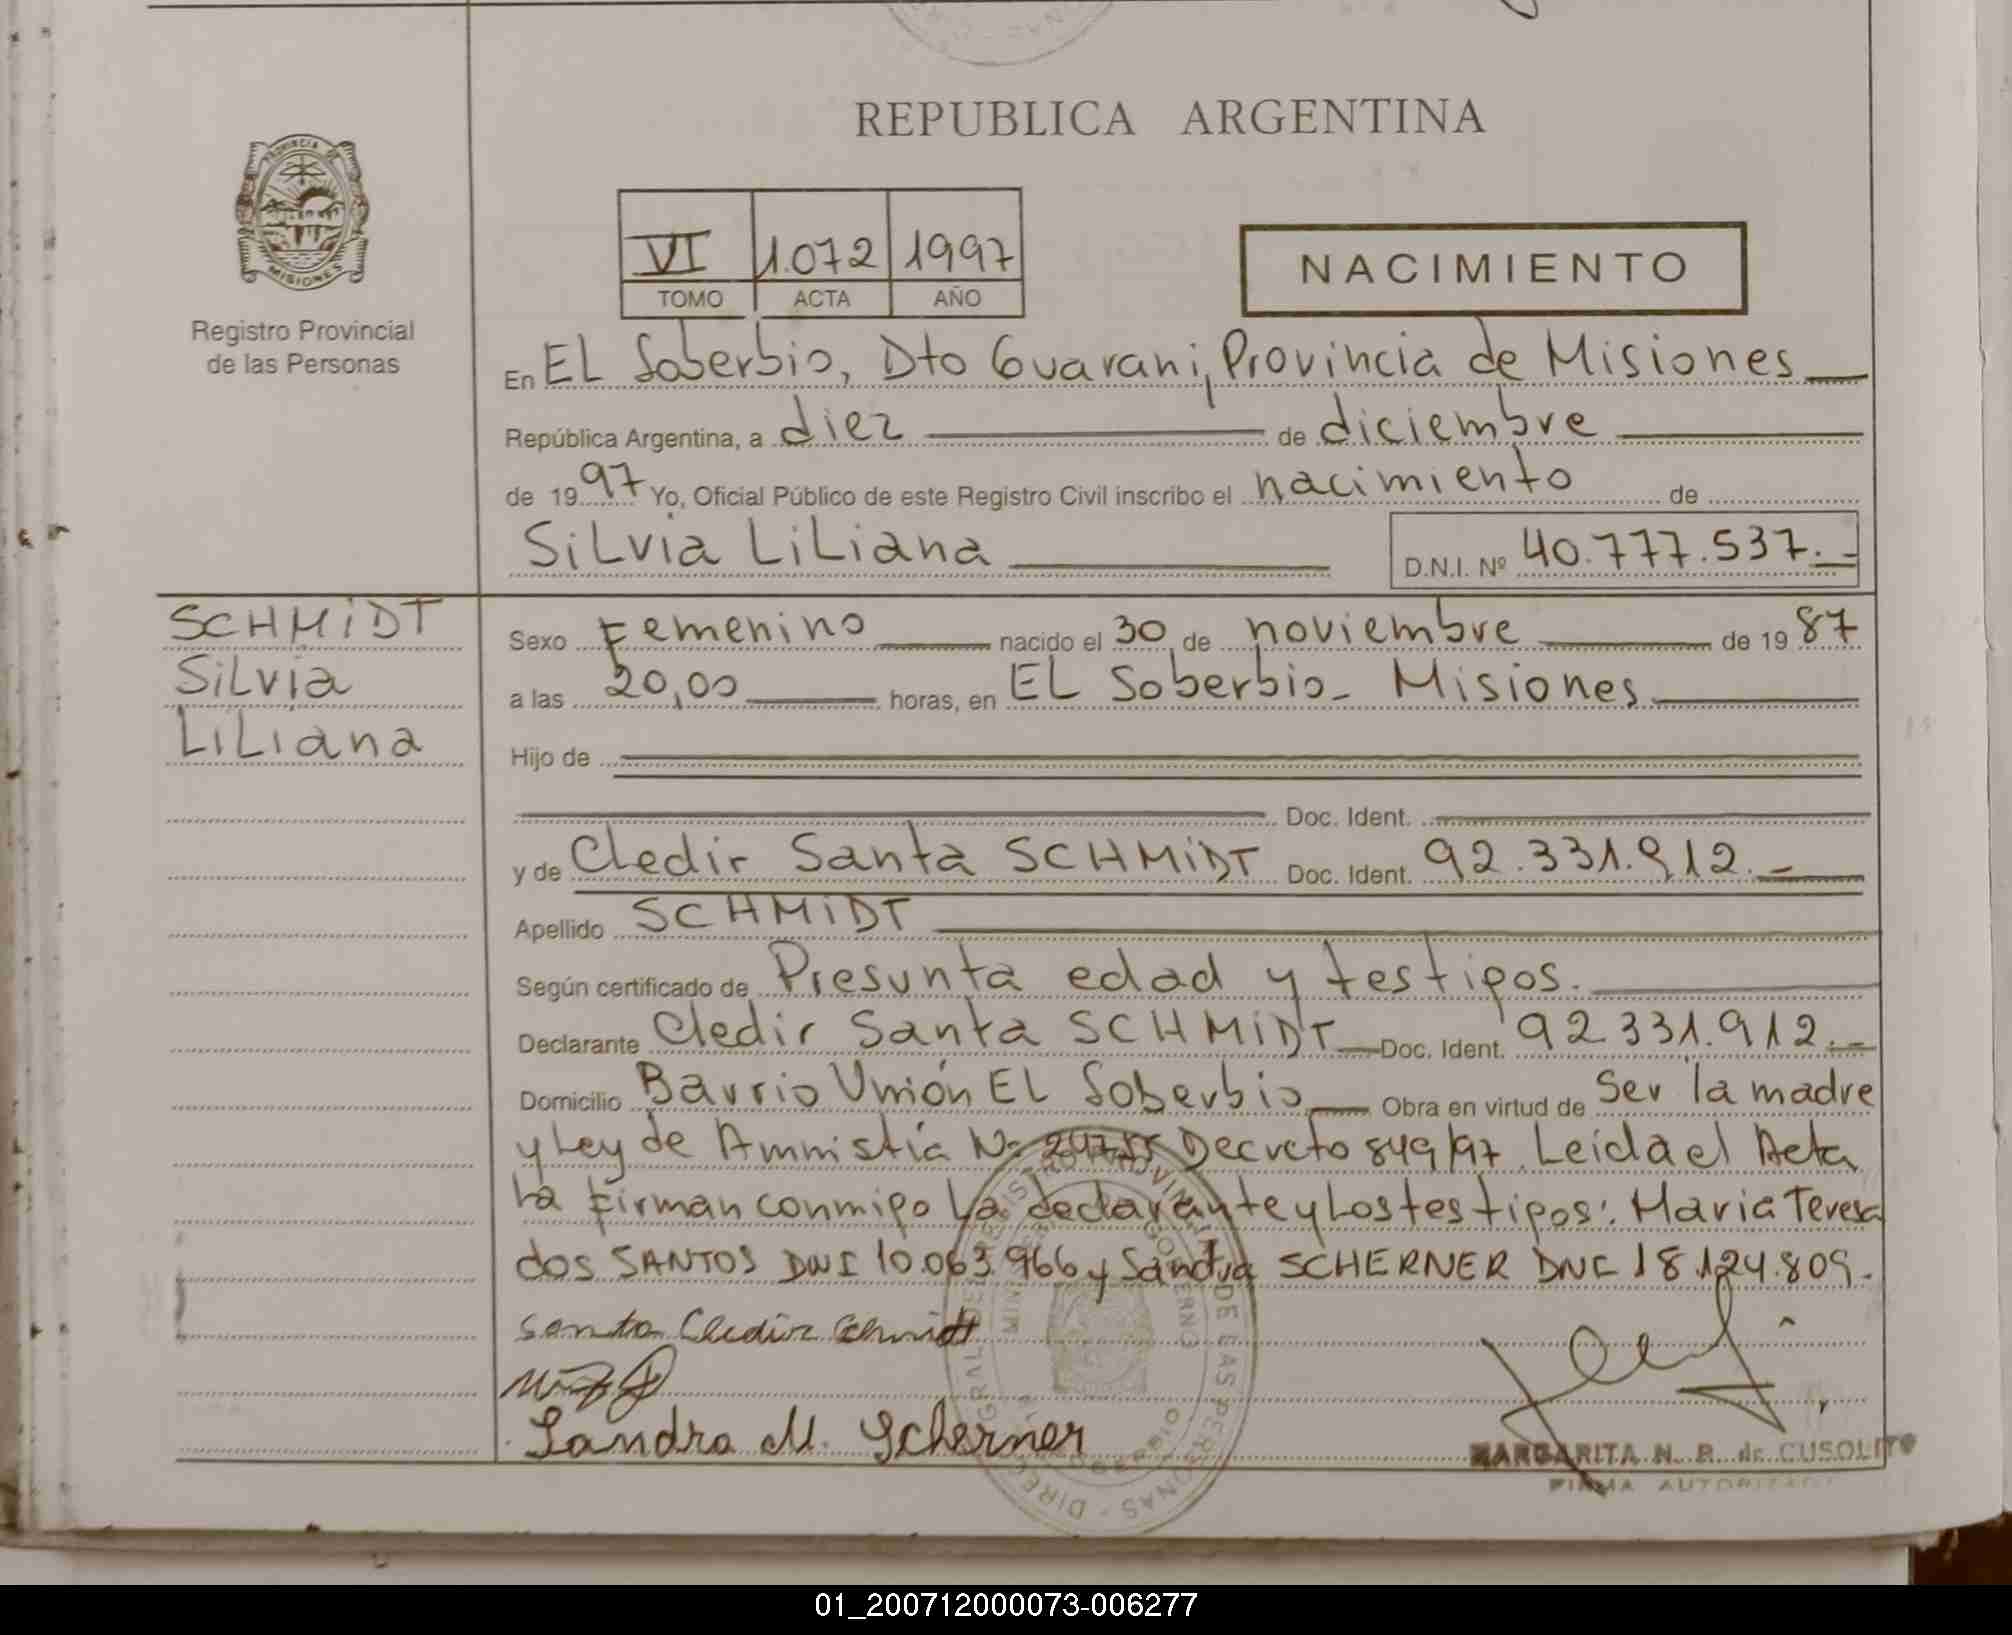 REPUBLICA ARGENTINA
PROVINCIA DE
MISIONES
Registro Provincial
de las Personas
VI 1.072 1997
TOMO ACTA AÑO
NACIMIENTO
En EL Soberbio, Dto Guarani, Provincia de Misiones
República Argentina, a diez de diciembre
de 1997 Yo, Oficial Público de este Registro Civil inscribo el nacimiento de
SiLvia LiLiana D.N.I. Nº 40.777.537.-
SCHMiDT
SiLvia
LiLiana
Sexo Femenino nacido el 30 de noviembre de 1987
a las 20,00 horas, en EL Soberbio - Misiones
Hijo de
Doc. Ident.
y de Cledir Santa SCHMiDT Doc. Ident. 92.331.912.-
Apellido SCHMiDT
Según certificado de Presunta edad y testigos.
Declarante Cledir Santa SCHMiDT Doc. Ident. 92.331.912.-
Domicilio Barrio Unión EL Soberbio Obra en virtud de Ser la madre
y Ley de Amnistía Nº Decreto 849/97. Leida el Acta
la firman conmigo La declarante y Los testigos: Maria Teresa
dos SANTOS DNI 10.063.966 y Sandra SCHERNER DNI 18.124.809.
Santa Cledir Schmidt
Sandra M. Scherner
MARGARITA N. R. de CUSOLITO
FIRMA AUTORIZADA
01_200712000073-006277